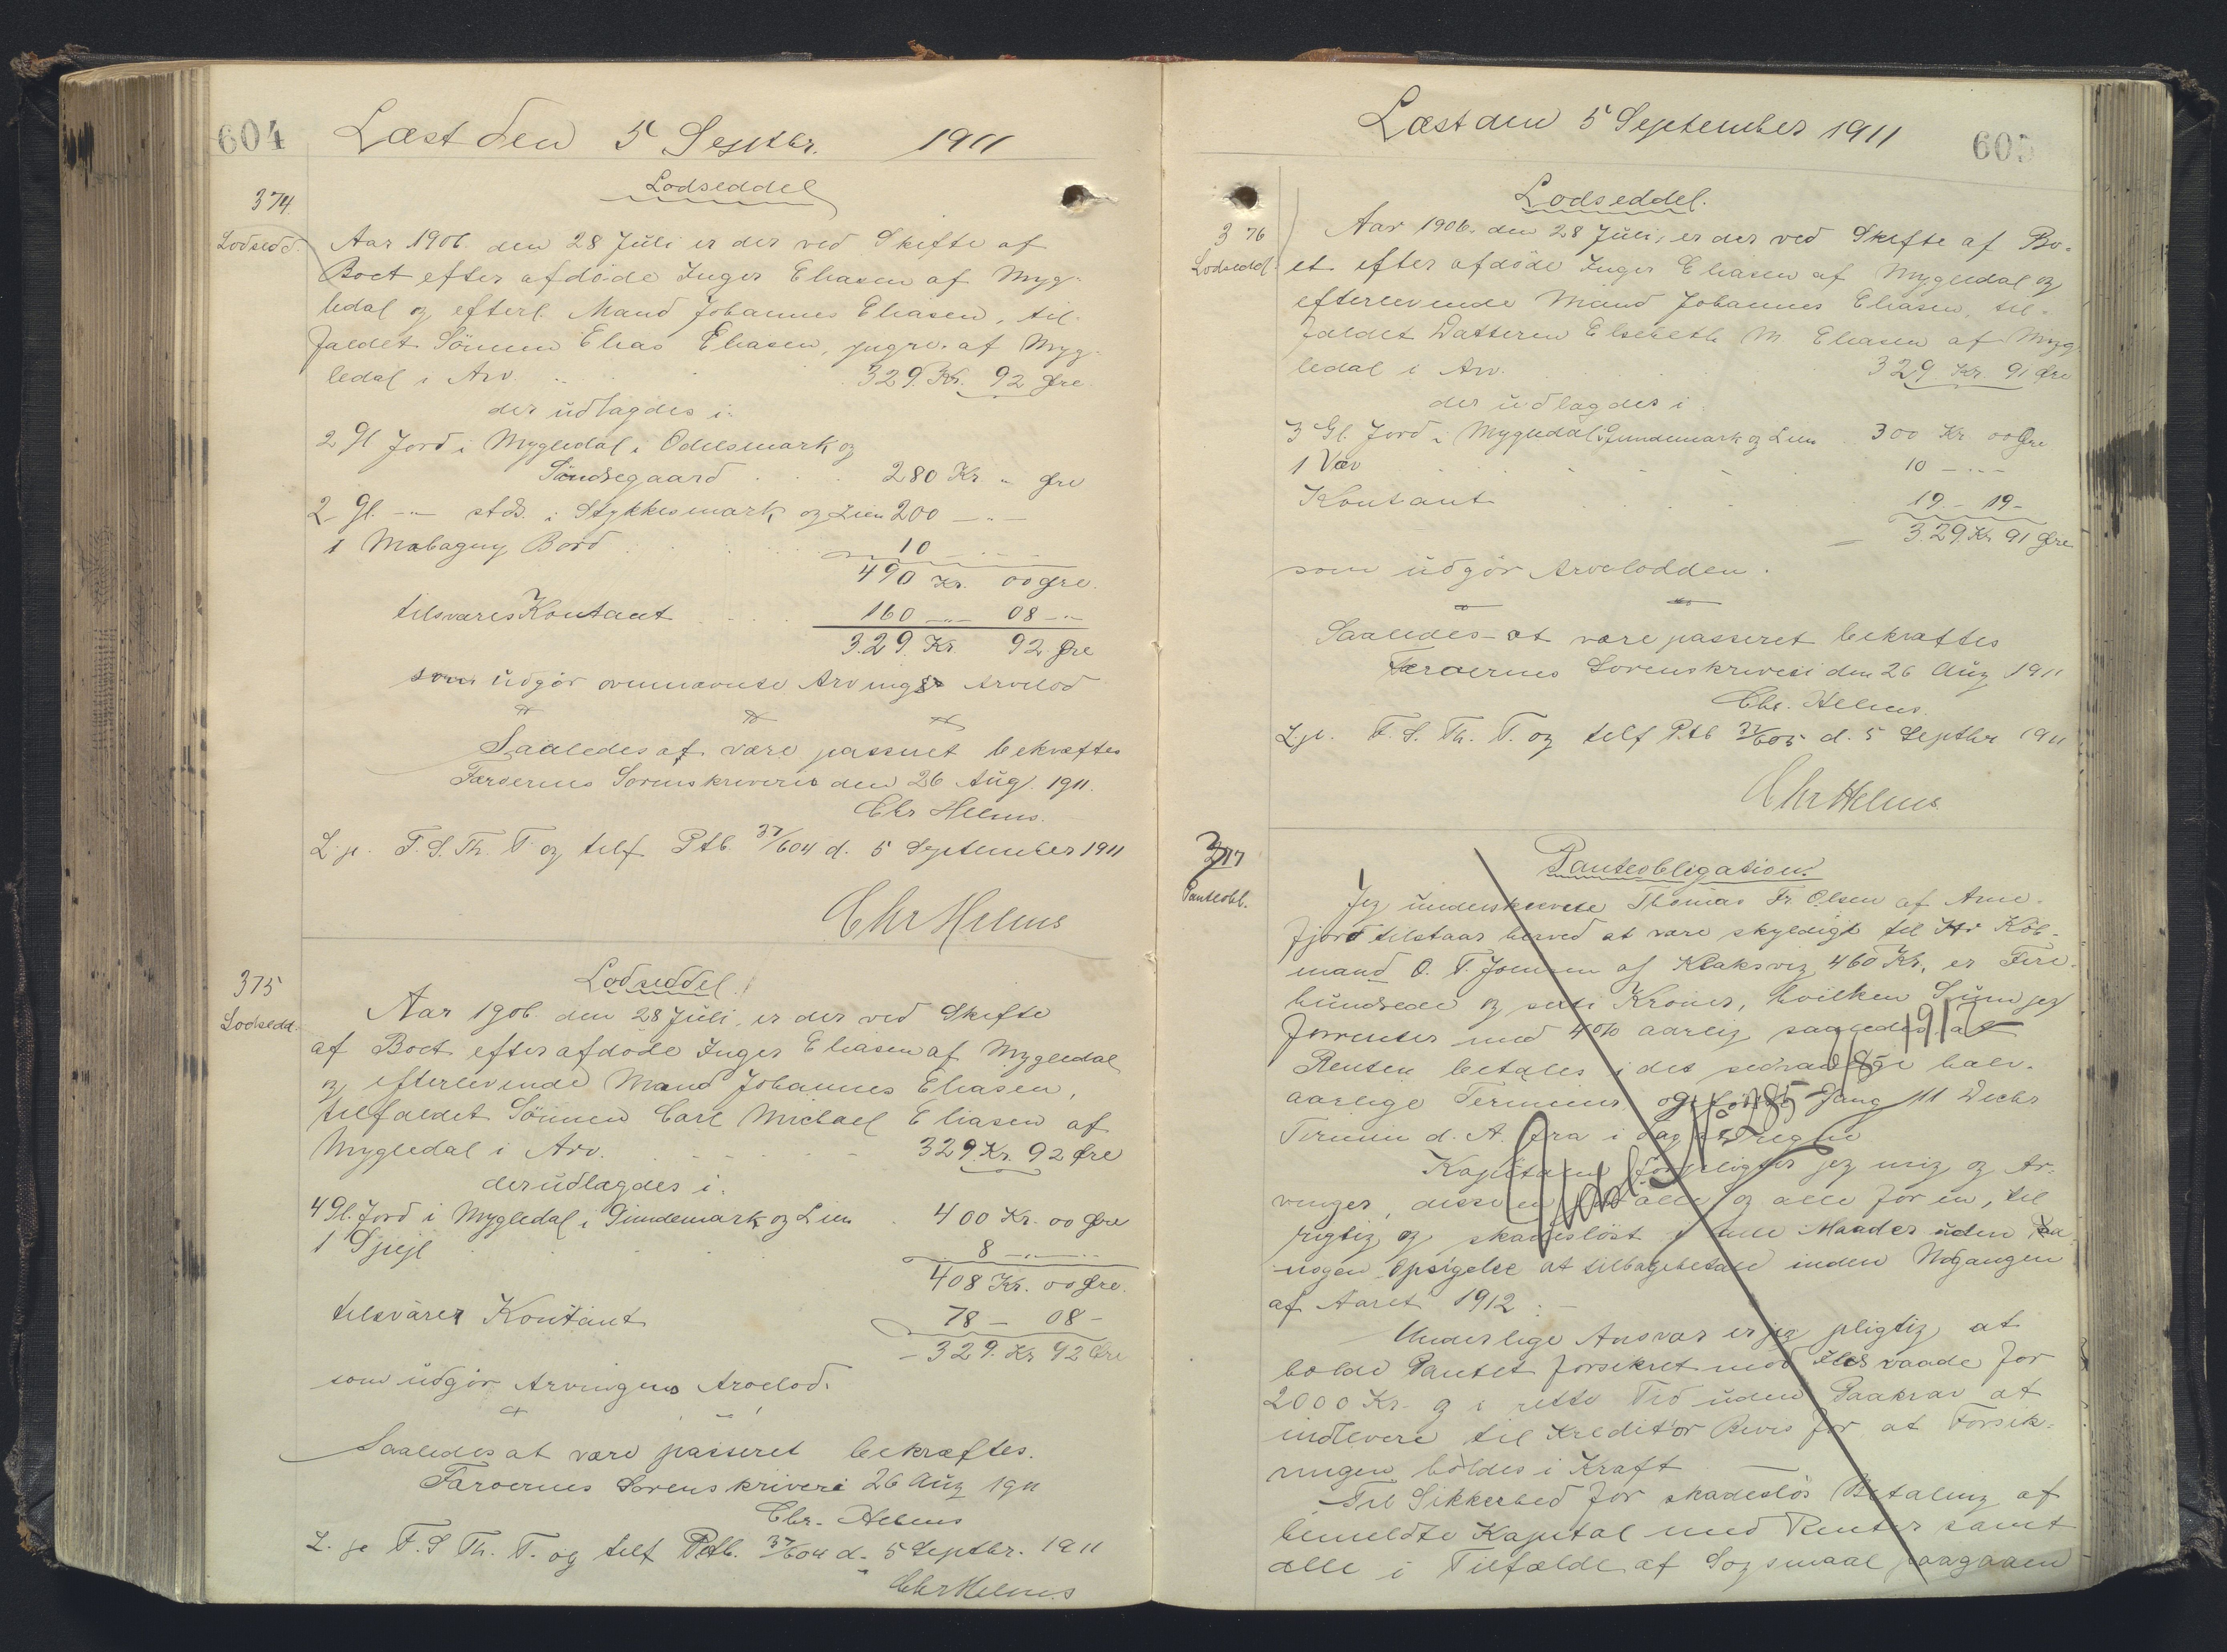 604
Læst den 5 Septbr. 1911
Lodseddel
374.
Lodsedd.
Aar 1906 den 28 Juli er der ved Skifte af
Boet efter afdøde Inger Eliasen af Myg-
ledal og efterl. Mand Johannes Eliasen, til-
faldet Sönnen Elias Eliasen, yngre, af Myg-
ledal i Arv 329 Kr. 92 Øre
der udlagdes i:
2 Gl Jord i Mygledal i Odelsmark og
Söndregaard 280 Kr. " Øre
2 Gl. -"- stds. i Stykkesmark og Lien 200 -"-
1 Mahagny Bord 10 -"-
490 Kr. 00 Øre.
tilsvares Kontant 160 -"- 08 -"-
329 Kr. 92 Øre
som udgör ovennævnte Arvings Arvelod
Saaledes at være passeret bekræftes
Færøernes Sorenskriveri den 26 Aug. 1911.
Chr Helms.
L. p. F. S. Th. T. og tilf Ptb. 37/604 d. 5 September 1911
Chr Helms
375
Lodsedd.
Lodseddel.
Aar 1906 den 28 Juli, er der ved Skifte
af Boet efter afdöde Inger Eliasen af Mygledal
og efterlevende Mand Johannes Eliasen,
tilfaldet Sönnen Carl Michael Eliasen af
Mygledal i Arv. 329 Kr. 92 Øre
der udlagdes i:
4 Gl. Jord i Mygledal i Gundemark og Lien 400 Kr. 00 Øre
1 Spejl 8 -"-
408 Kr. 00 Øre.
tilsvarer Kontant 78 - 08 -
329. Kr 92 Øre
som udgör Arvingens Arvelod.
Saaledes at være passeret bekræftes.
Færøernes Sorenskriveri 26 Aug 1911
Chr. Helms
L. p. F. S Th. T. og tilf Ptb. 37/604 d. 5 Septbr. 1911
Chr Helms
Læst den 5 September 1911
605
Lodseddel.
376
Lodsedd.
Aar 1906 den 28 Juli, er der ved Skifte af Bo-
et efter afdöde Inger Eliasen af Mygledal og
efterlevende Mand Johannes Eliasen, til-
faldet Datteren Elsebeth M. Eliasen af Myg-
ledal i Arv. 329 Kr. 91 Øre
der udlagdes i
3 Gl. Jord i Mygledal i Gundemark og Lien 300 Kr. 00 Øre
1 Væv 10 -"-
Kontant 19 - 19 -
329. Kr 91 Øre
som udgör Arvelodden.
Saaledes at være passeret bekræftes
Færøernes Sorenskriveri den 26 Aug 1911
Chr. Helms.
L. p. F. S. Th. T. og tilf Ptb 37/605 d. 5 Septbr 1911
Chr Helms
377
Panteobl.
Panteobligation.
Jeg underskrevne Thomas Fr. Olsen af Arne-
fjord tilstaar herved at være skyldig til Hr Köb-
mand O. F. Joensen af Klaksvig 460 Kr, er Fire-
hundrede og seksti Kroner, hvilken Sum jeg
forrenter med 4% aarlig saaledes at
Renten betales i det sædvanlige halv-
aarlige Terminer og förste Gang 11 Decbr
Termin d. A. fra i Dag at regne
Kapitalen forpligter jeg mig og Ar-
vinger, disse en for alle og alle for en, til
rigtig og skadeslöst i alle Maader uden
nogen Opsigelse at tilbagebetale inden Udgangen
af Aaret 1912. -
Under lige Ansvar er jeg pligtig at
holde Pantet forsikret mod Ildsvaade for
2000 Kr. og i rette Tid uden Paakrav at
indlevere til Kreditor Bevis for at Forsik-
ringen holdes i Kraft
Til Sikkerhed for skadeslös Betaling af
bemeldte Kapital med Renter samt
alle i Tilfælde af Sögsmaal paagaaen